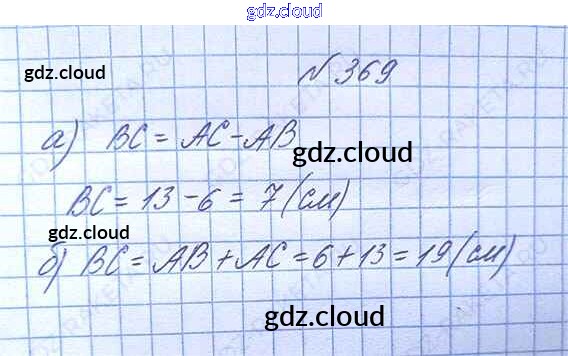 gdz.cloud
gdz.cloud
№ 369
а) BC = AC - AB
gdz.cloud
BC = 13 - 6 = 7 (см)
gdz.cloud
б) BC = AB + AC = 6 + 13 = 19 (см)
gdz.cloud